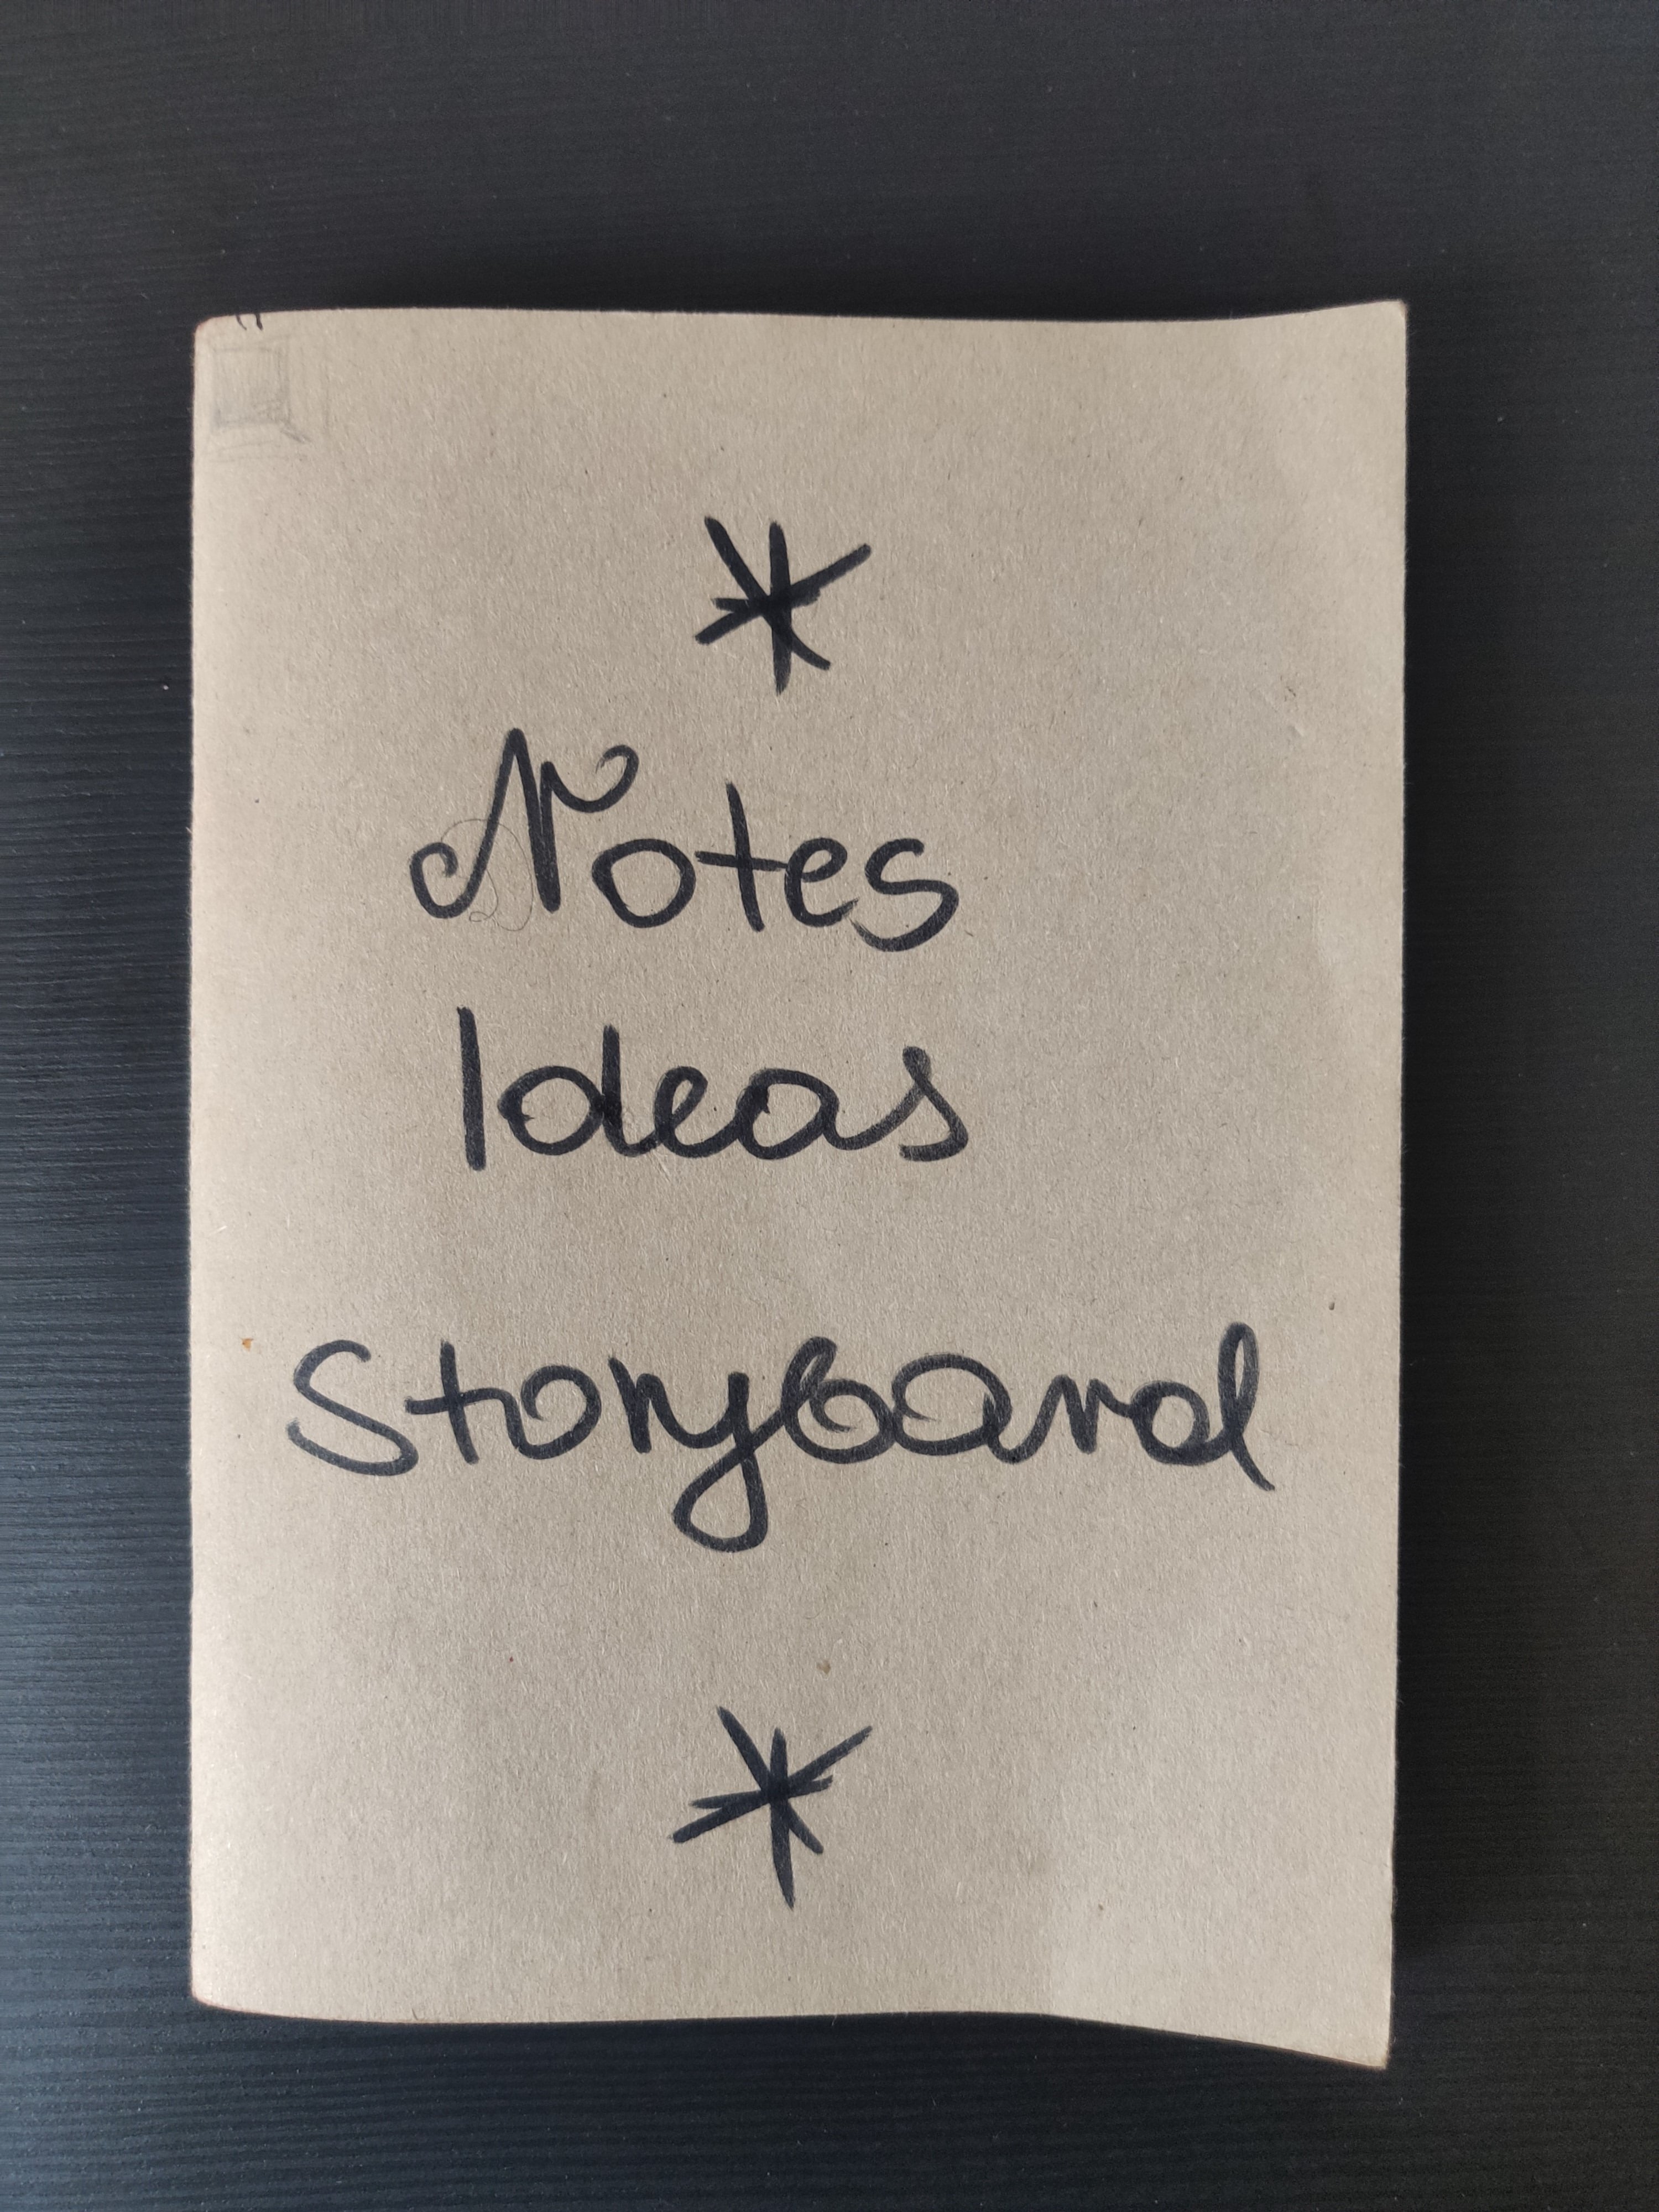 *
Notes
Ideas
Storybard
*